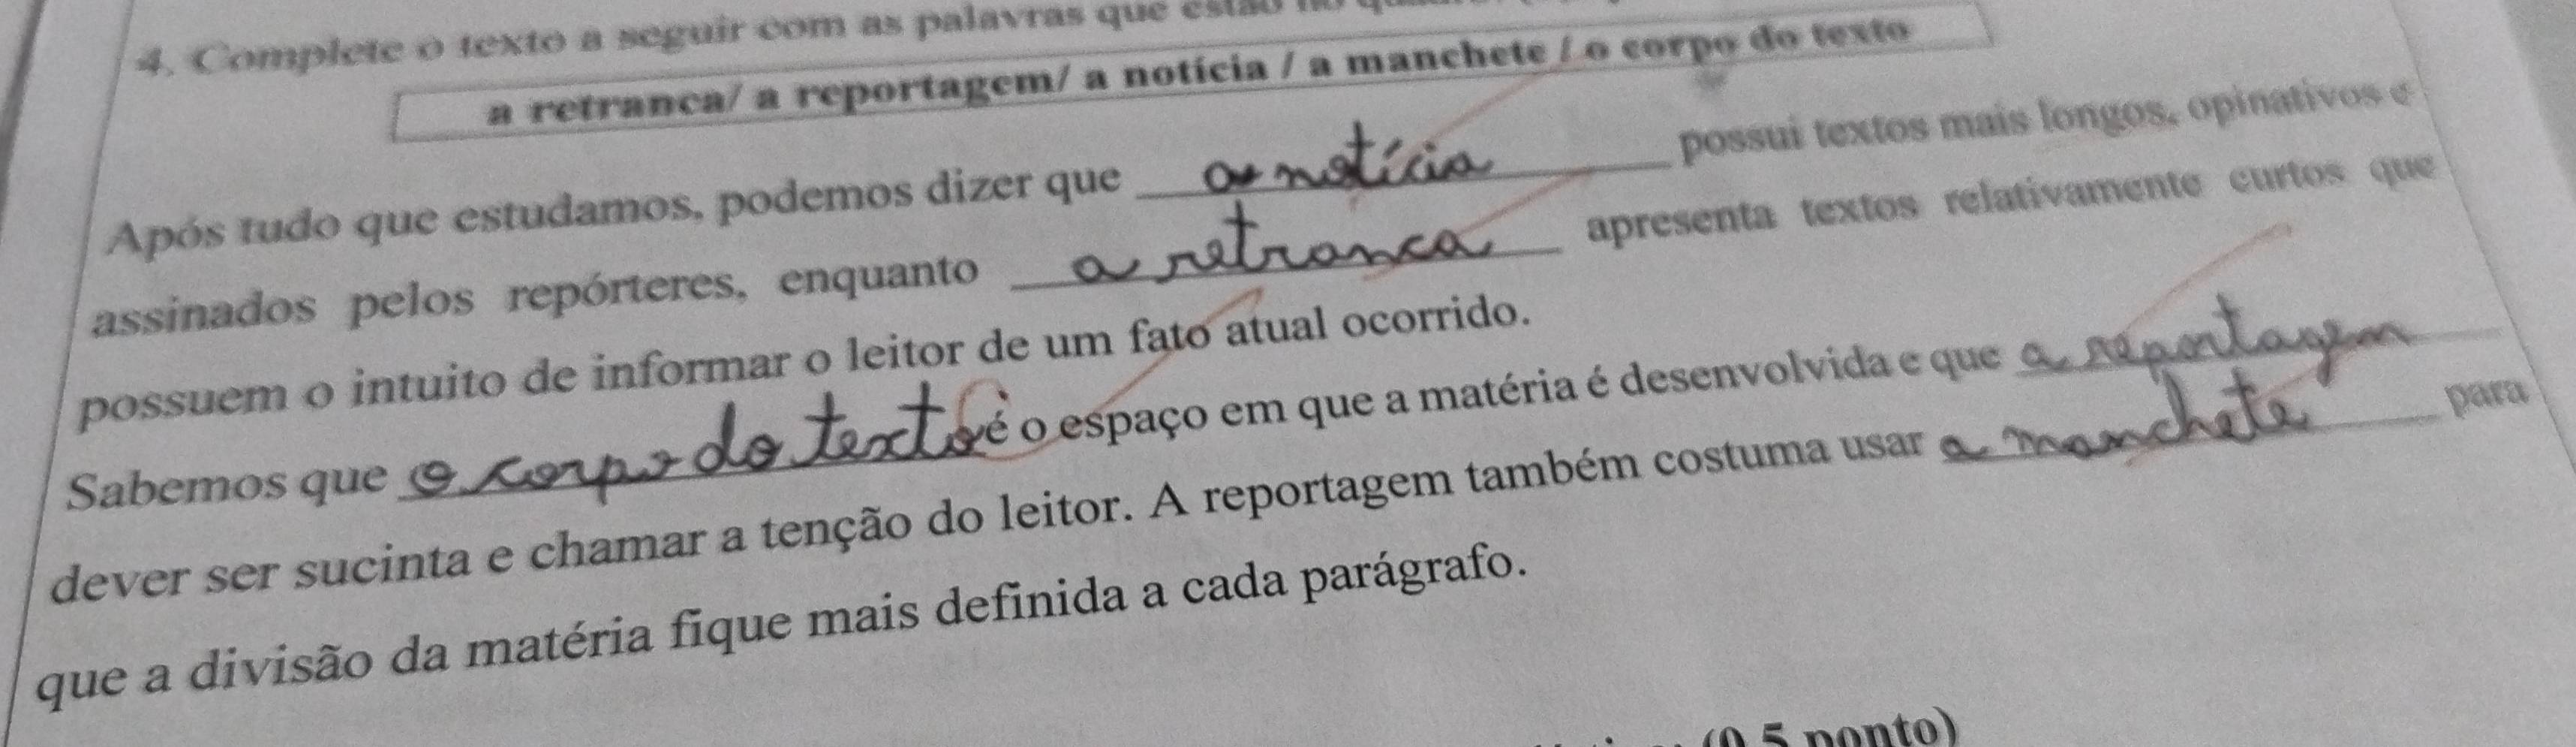 4. Complete o texto a seguir com as palavras que estão no
a retranca/ a reportagem/ a notícia / a manchete / o corpo do texto
Após tudo que estudamos, podemos dizer que a notícia possui textos mais longos, opinativos e
assinados pelos repórteres, enquanto a retranca apresenta textos relativamente curtos que
possuem o intuito de informar o leitor de um fato atual ocorrido.
Sabemos que o corpo do texto é o espaço em que a matéria é desenvolvida e que a reportagem
dever ser sucinta e chamar a tenção do leitor. A reportagem também costuma usar a manchete para
que a divisão da matéria fique mais definida a cada parágrafo.
(0,5 ponto)